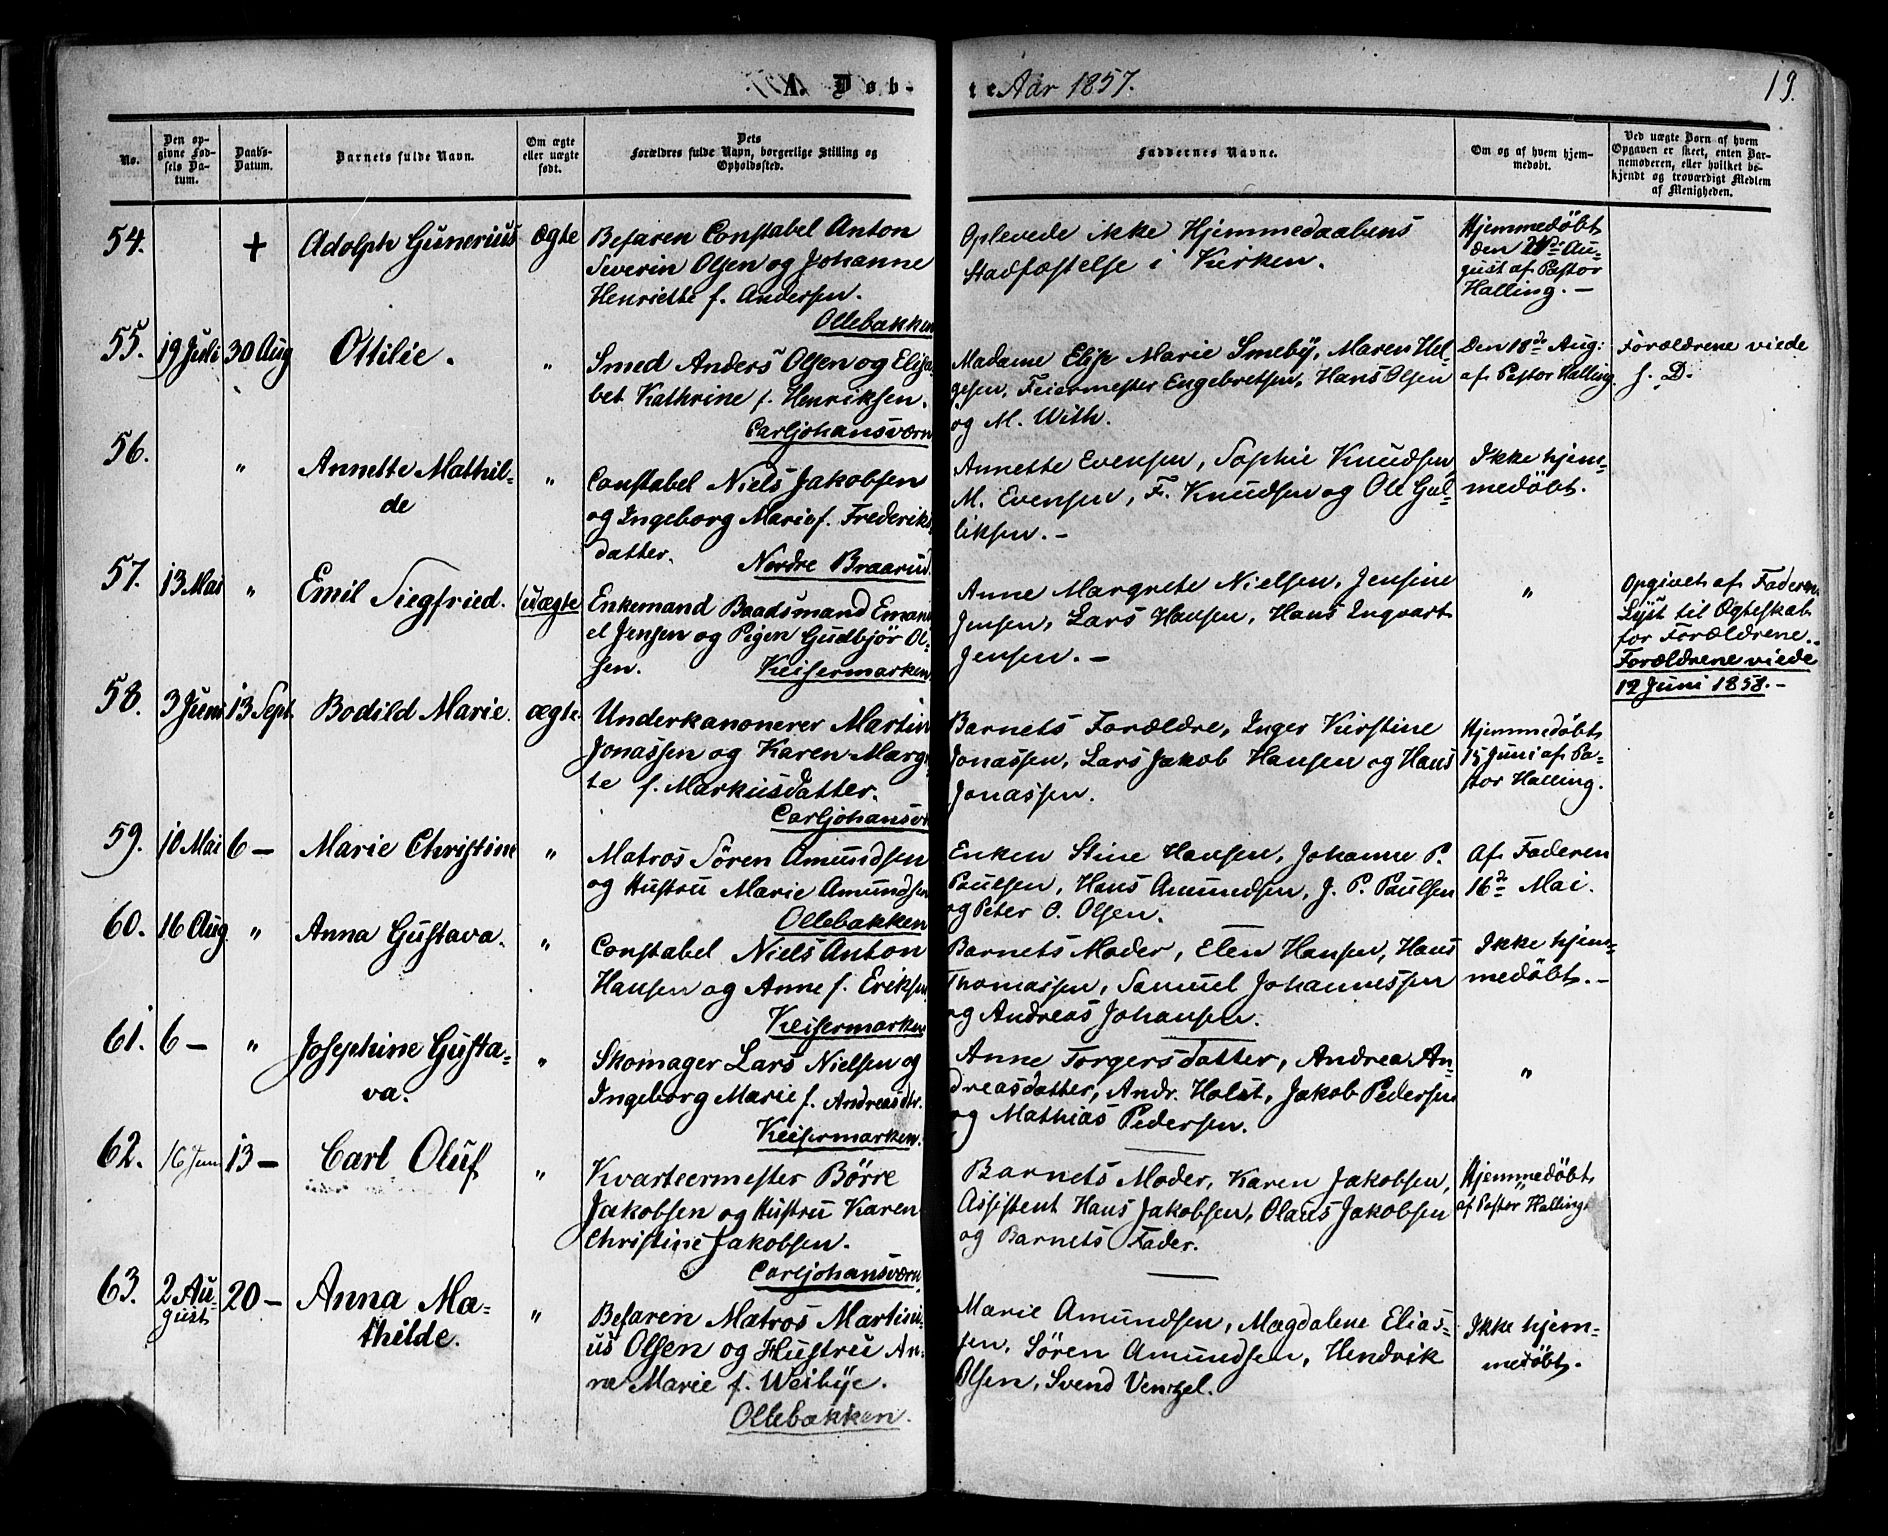 A. Døb-
te Aar 1857.
19.
No.
Den op-
givne Fød-
sels Da-
tum.
Daabs-
Datum.
Barnets fulde Navn.
Om ægte
eller uægte
født.
Dets
Forældres fulde Navn, borgerlige Stilling og
Opholdssted.
Faddernes Navne.
Om og af hvem hjem-
medøbt.
Ved uægte Børn af hvem
Opgaven er skeet, enten Bar-
nemoderen, eller hvilket be-
kjendt og troværdigt Medlem
af Menigheden.
54.
+
Adolph Gunerius
ægte
Befaren Constabel Anton
Severin Olsen og Johanne
Henriette f. Andersen.
Ollebakken
Oplevede ikke Hjemmedaabens
Stadfæstelse i Kirken.
Hjemmedøbt
den Au-
gust af Pastor
Halling. –
55.
19 Juli
30 Aug
Ottilie.
"
Smed Anders Olsen og Elisa-
bet Kathrine f. Henriksen.
Carljohansværn
Madame Elise Marie Smeby, Maren Hel-
gesen, Feiermester Engebretsen, Hans Olsen
og M. With.
Den 18de Aug:
af Pastor Halling.
Forældrene viede
s. D.
56.
"
Annette Mathil-
de
"
Constabel Niels Jakobsen
og Ingeborg Marie f. Frederiks
datter.
Nordre Braarud.
Annette Evensen, Sophie Knudsen
M. Evensen, F. Knudsen og Ole Gul-
liksen. –
Ikke hjem-
medøbt.
57.
13 Mai
"
Emil Siegfried.
(uægte
Enkemand Baadsmand Emanu
el Jensen og Pigen Gudbjör Ol-
sen.
Keisermarken
Anne Margrete Nielsen, Jensine
Jensen, Lars Hansen, Hans Ingvart
Jensen. –
"
Opgivet af Faderen.
Lyst til Ægteskab
for Forældrene.
Forældrene viede
12 Juni 1858. –
58.
3 Juni
13 Sept.
Bodild Marie.
ægte.
Underkanonerer Martin
Jonassen og Karen Margre-
te f. Markusdatter.
Carljohansv
Barnets Forældre, Inger Kirstine
Jonassen, Lars Jakob Hansen og Hans
Jonassen.
Hjemmedøbt
15 Juni af Pa-
stor Halling.
59.
10 Mai
6 –
Marie Christine
"
Matros Sören Amundsen
og Hustru Marie Amundsen
Ollebakken
Enken Stine Hansen, Johanne P.
Paulsen, Hans Amundsen, J. P. Paulsen
og Peter O. Olsen.
Af Faderen
16de Mai.
60.
16 Aug
"
Anna Gustava.
"
Constabel Niels Anton
Hansen og Anne f. Eriksen
Keisermarken
Barnets Moder, Elen Hansen, Hans
Thomassen, Samuel Johannessen
og Andreas Johansen.
Ikke hjem-
medøbt. –
61.
6 –
"
Josephine Gusta-
va.
"
Skomager Lars Nielsen og
Ingeborg Marie f. Andreasdtr.
Keisermarken.
Anne Torgersdatter, Andrea An-
dreasdatter, Andr. Holst, Jakob Pedersen
og Mathias Pedersen.
"
62.
16 Juni
13 –
Carl Oluf
"
Kvarteermester Börre
Jakobsen og Hustru Karen
Christine Jakobsen.
Carljohansværn.
Barnets Moder, Karen Jakobsen,
Assistent Hans Jakobsen, Olaus Jakobsen
og Barnets Fader.
Hjemmedøbt
af Pastor Halling
63.
2 Au-
gust
20 –
Anna Ma-
thilde.
"
Befaren Matros Martini-
us Olsen og Hustru An-
ne Marie f. Weibye.
Ollebakken.
Marie Amundsen, Magdalene Elias-
sen, Sören Amundsen, Hendrik
Olsen, Svend Ventzel.
Ikke hjem-
medøbt.